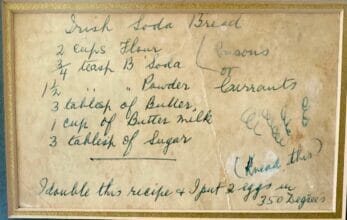 Irish Soda Bread
2 cups Flour
3/4 teasp B Soda
1 1/2 " " Powder
3 tablesp of Butter,
1 cup of Butter milk
3 tablesp of Sugar
Raisons
or
Currants
(Knead this)
I double this recipe & I put 2 eggs in
350 Degrees